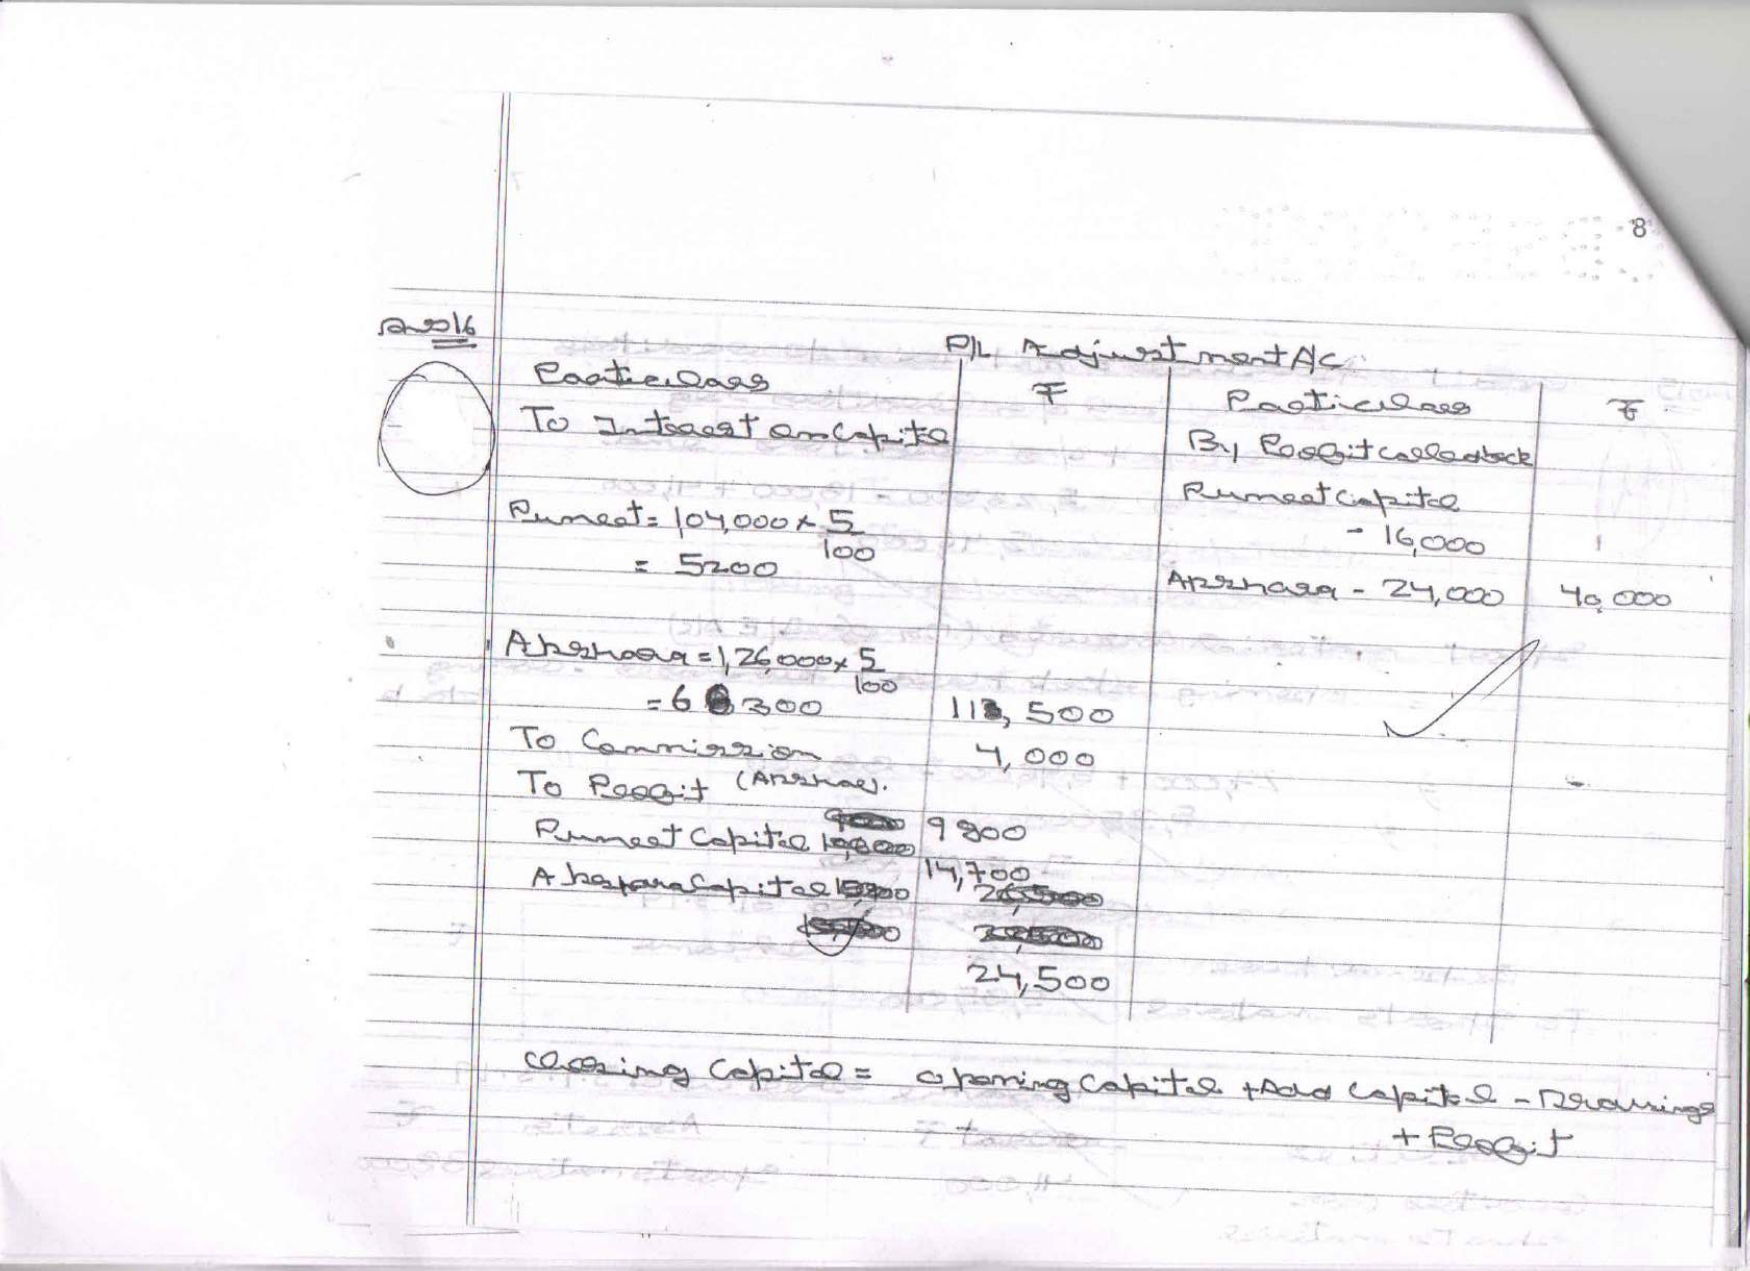 8
Ans16
P/L Adjustment A/c
Particulars ₹ Particulars ₹
To Interest on Capital By Profit called back
Puneet Capital
Puneet = 104,000 × 5/100 - 16,000
= 5200 Akshara - 24,000 40,000
Akshara = 1,26,000 × 5/100
= 6300 11,500
To Commission 4,000
To Profit (Akshar).
Puneet Capital 9800
Akshara Capital 14,700
24,500
Closing Capital = Opening Capital + Add Capital - Drawings
+ Profit